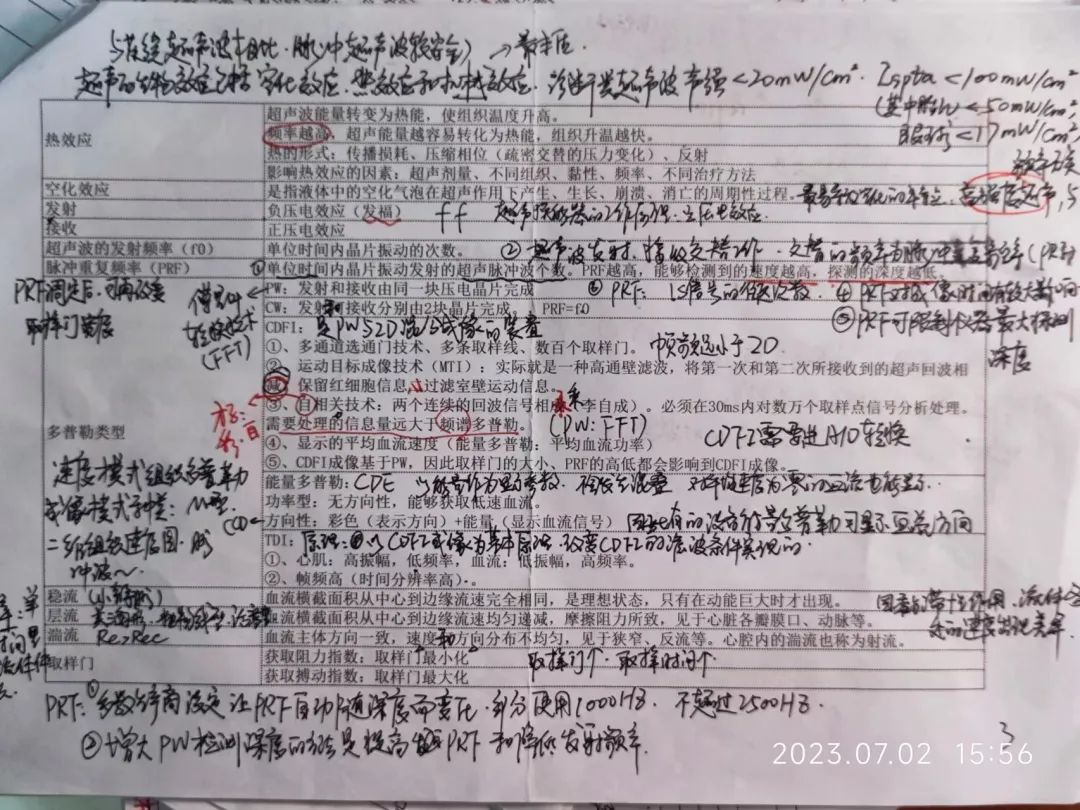 与连续超声波相比.脉冲超声波较安全
超声的生物效应包括空化效应.热效应和机械效应.诊断类超声波声强<20mW/cm² Ispta<100mW/cm²
(其中胎儿<50mW/cm²,
眼球<17mW/cm²
热效应
超声波能量转变为热能，使组织温度升高。
频率越高，超声能量越容易转化为热能，组织升温越快。
热的形式：传播损耗、压缩相位（疏密交替的压力变化）、反射
影响热效应的因素：超声剂量、不同组织、黏性、频率、不同治疗方法
空化效应 是指液体中的空化气泡在超声作用下产生、生长、崩溃、消亡的周期性过程。
高强度超声
发射 负压电效应（发福） ff 超声换能器的工作原理：压电效应.
接收 正压电效应
超声波的发射频率（f0） 单位时间内晶片振动的次数。 ②超声波发射.接收交替工作.交替的频率为脉冲重复频率(PRF)
脉冲重复频率（PRF） ①单位时间内晶片振动发射的超声脉冲波个数。PRF越高，能够检测到的速度越高，探测的深度越低。
PRF调定后.可再改变
取样门宽度
PW：发射和接收由同一块压电晶片完成 ⑥PRF:
CW：发射和接收分别由2块晶片完成。 PRF=f0 ⑤PRF可限制仪器最大探测
深度
(FFT)
多普勒类型
CDFI：是PW与2D混合成像的装置
①、多通道选通门技术、多条取样线、数百个取样门。 帧频远小于2D
②、运动目标成像技术（MTI）：实际就是一种高通壁滤波，将第一次和第二次所接收到的超声回波相
减，保留红细胞信息，过滤室壁运动信息。
③、自相关技术：两个连续的回波信号相乘（李自成）。必须在30ms内对数万个取样点信号分析处理。
需要处理的信息量远大于频谱多普勒。 (PW:FFT)
④、显示的平均血流速度（能量多普勒：平均血流功率） CDFI需要进A/D转换
⑤、CDFI成像基于PW，因此取样门的大小、PRF的高低都会影响到CDFI成像。
能量多普勒：CDE
功率型：无方向性，能够获取低速血流。
方向性：彩色（表示方向）+能量（显示血流信号）
TDI：原理:以CDFI成像为基本原理.改变CDFI的滤波条件实现的.
①、心肌：高振幅，低频率，血流：低振幅，高频率。
②、帧频高（时间分辨率高）。
速度模式组织多普勒
成像模式种类：M型.
二维组织速度图.脉
冲波~.
稳流 血流横截面积从中心到边缘流速完全相同，是理想状态，只有在动能巨大时才出现。
层流 血流横截面积从中心到边缘流速均匀递减，摩擦阻力所致，见于心脏各瓣膜口、动脉等。
湍流 Re>Rec 血流主体方向一致，速度和方向分布不均匀，见于狭窄、反流等。心腔内的湍流也称为射流。
取样门
获取阻力指数：取样门最小化 取样门↑ 取样时间↑
获取搏动指数：取样门最大化
PRF:①多数厂商设定让PRF自动随深度而变化.部分使用1000HZ. 不超过2500HZ.
②增大PW检测深度的方法是提高PRF和降低发射频率.
3
2023.07.02 15:56